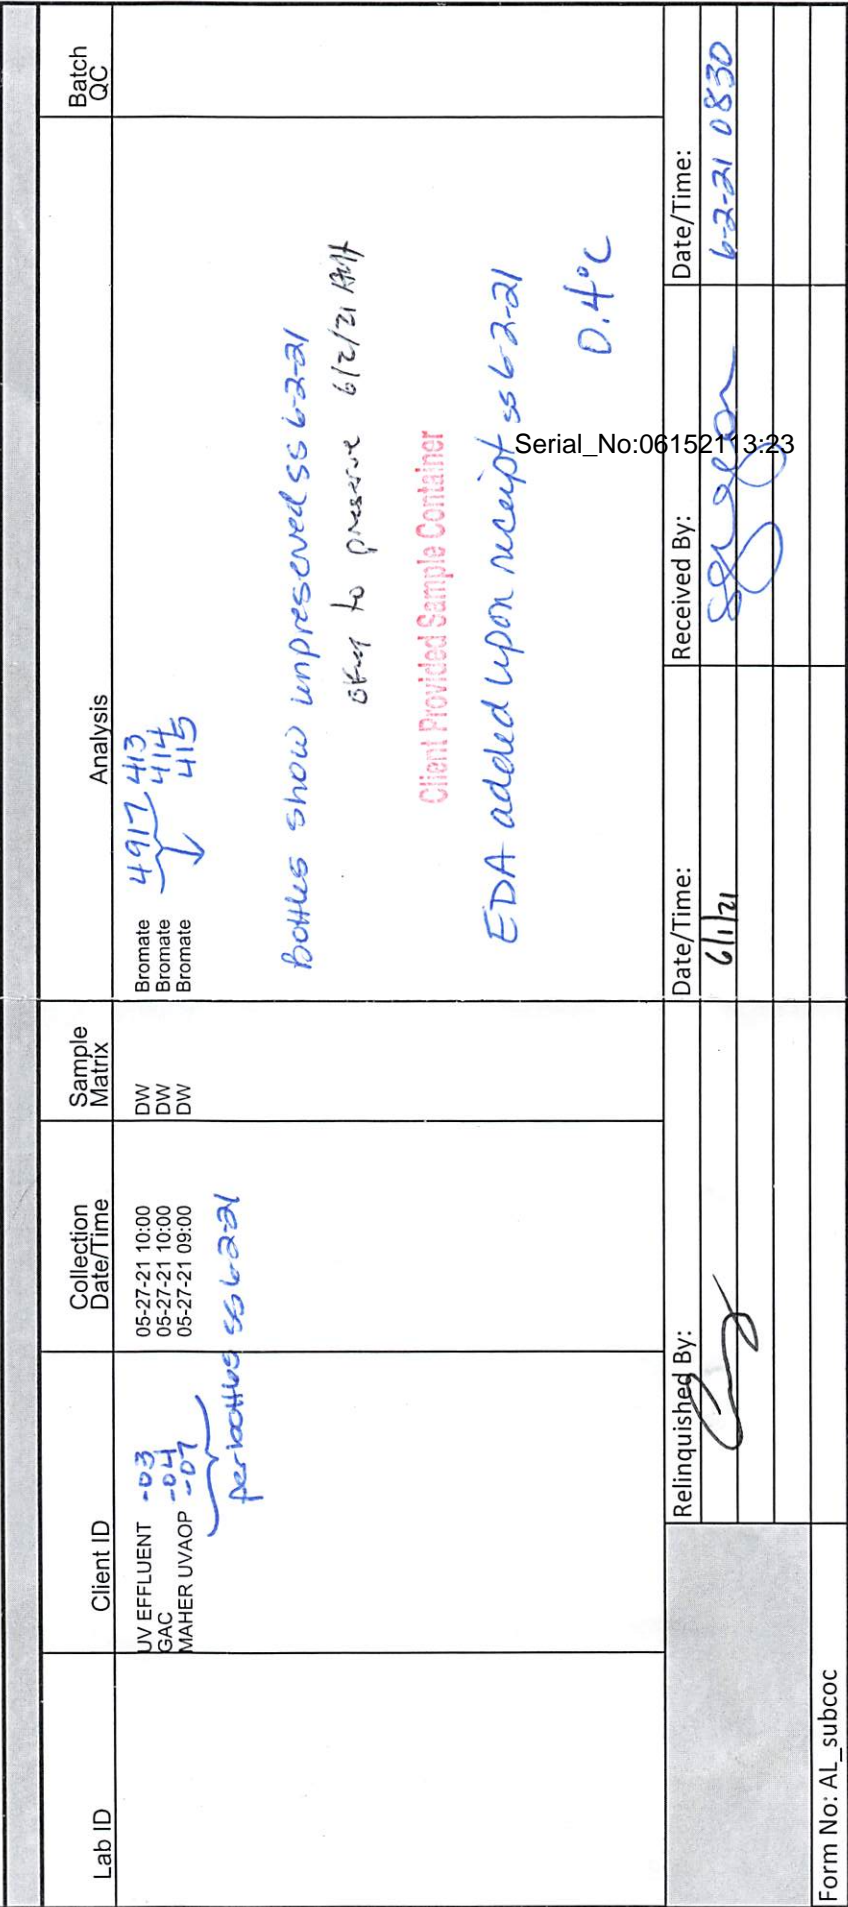 Lab ID Client ID Collection Date/Time Sample Matrix Analysis Batch QC
UV EFFLUENT -03 05-27-21 10:00 DW Bromate 4917413
GAC -04 05-27-21 10:00 DW Bromate 414
MAHER UVAOP -07 05-27-21 09:00 DW Bromate 415
per bottles ss 6-2-21
Bottles show unpreserved ss 6-2-21
okay to preserve 6/2/21
Client Provided Sample Container
EDA added upon receipt ss 6-2-21
0.4°C
Serial_No:06152113:23
Relinquished By: Date/Time: Received By: Date/Time:
6/1/21 6-2-21 0830
Form No: AL_subcoc